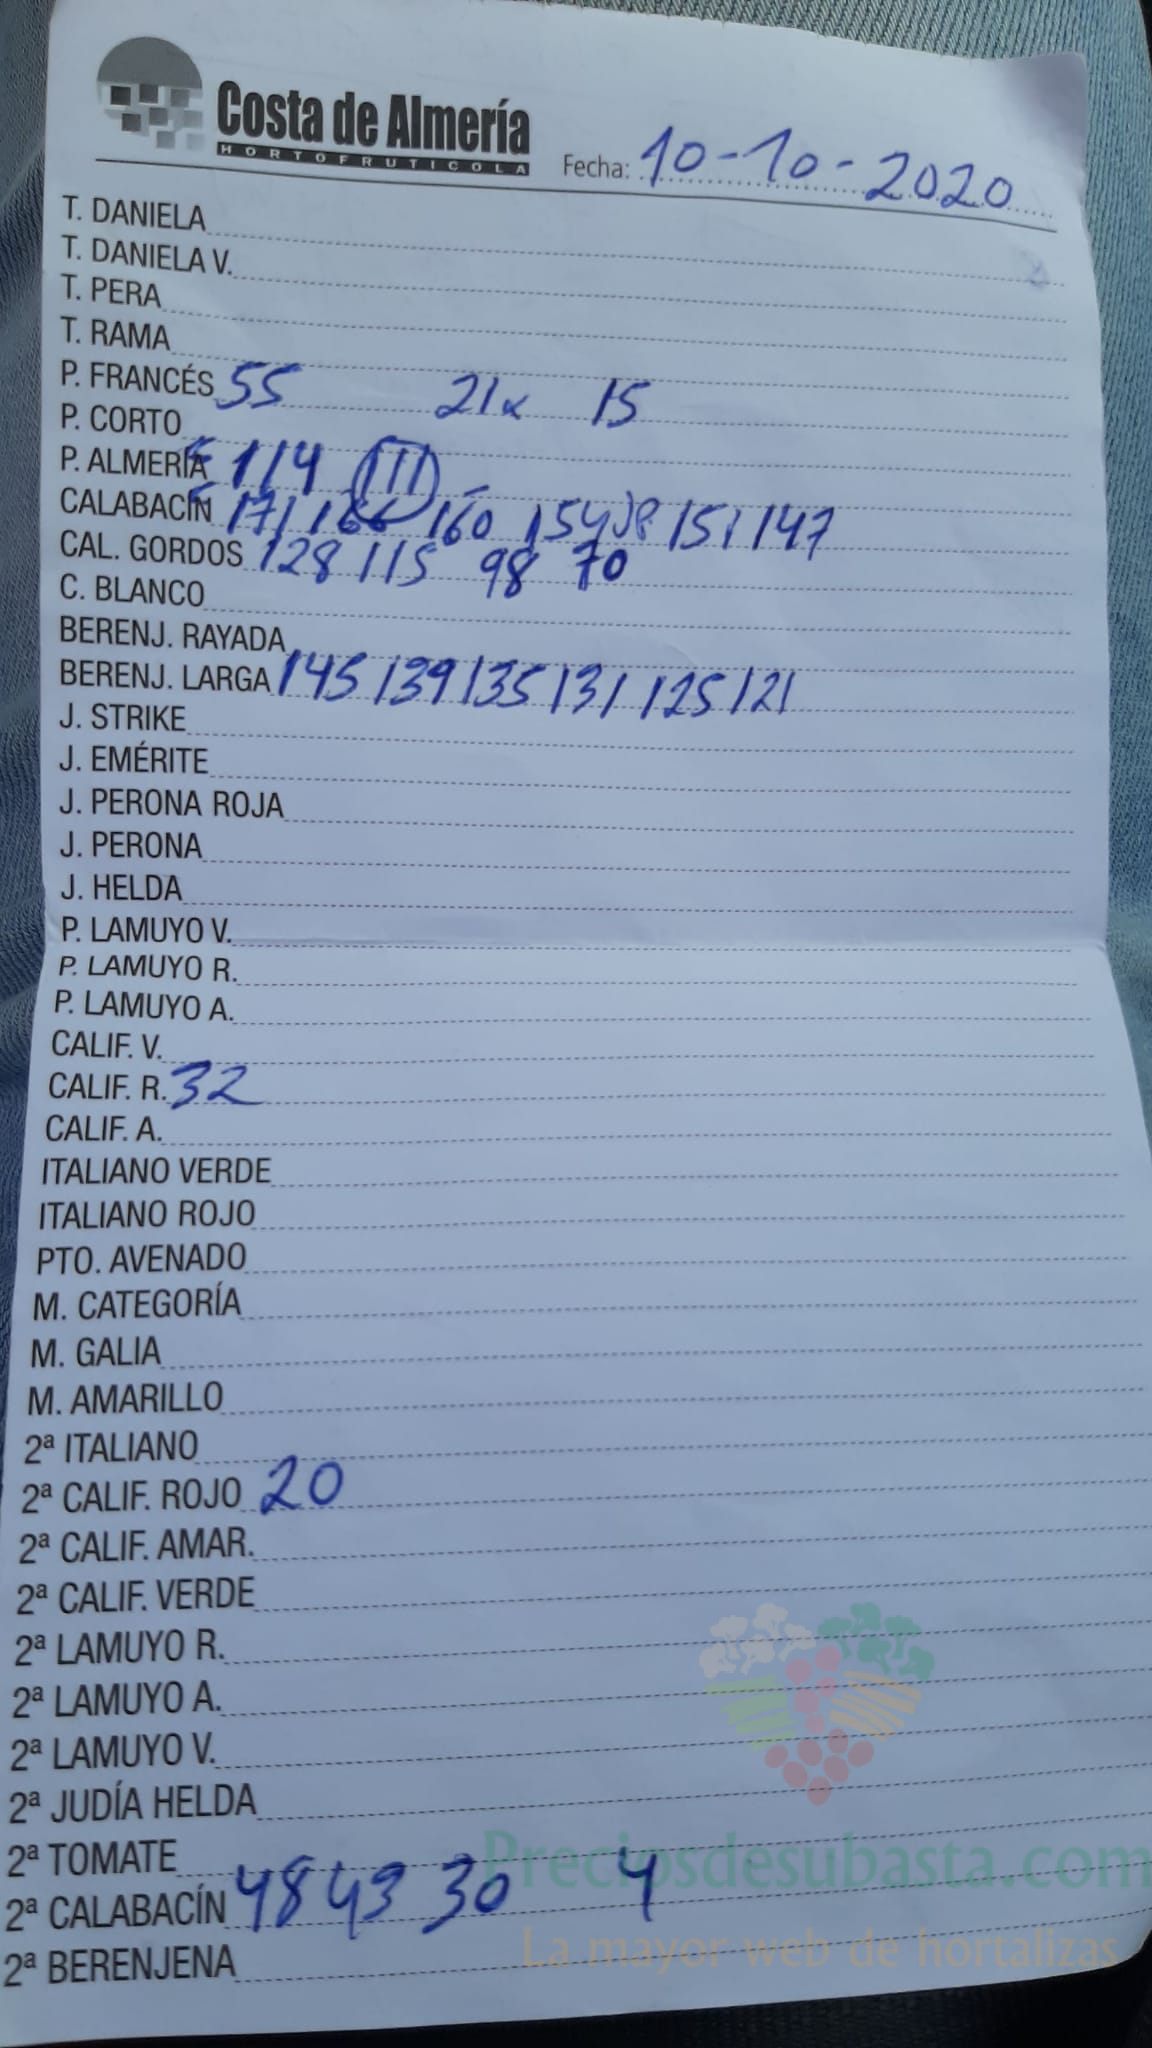 Costa de Almería
HORTOFRUTICOLA
Fecha: 10-10-2020
T. DANIELA
T. DANIELA V.
T. PERA
T. RAMA
P. FRANCÉS 55 21x 15
P. CORTO
P. ALMERÍA 114 111
CALABACÍN 171 166 160 154 151 147
CAL. GORDOS 128 115 98 70
C. BLANCO
BERENJ. RAYADA
BERENJ. LARGA 145 139 135 131 125 121
J. STRIKE
J. EMÉRITE
J. PERONA ROJA
J. PERONA
J. HELDA
P. LAMUYO V.
P. LAMUYO R.
P. LAMUYO A.
CALIF. V.
CALIF. R. 32
CALIF. A.
ITALIANO VERDE
ITALIANO ROJO
PTO. AVENADO
M. CATEGORÍA
M. GALIA
M. AMARILLO
2ª ITALIANO
2ª CALIF. ROJO 20
2ª CALIF. AMAR.
2ª CALIF. VERDE
2ª LAMUYO R.
2ª LAMUYO A.
2ª LAMUYO V.
2ª JUDÍA HELDA
2ª TOMATE
2ª CALABACÍN 48 43 30 4
2ª BERENJENA
Preciosdesubasta.com
La mayor web de hortalizas